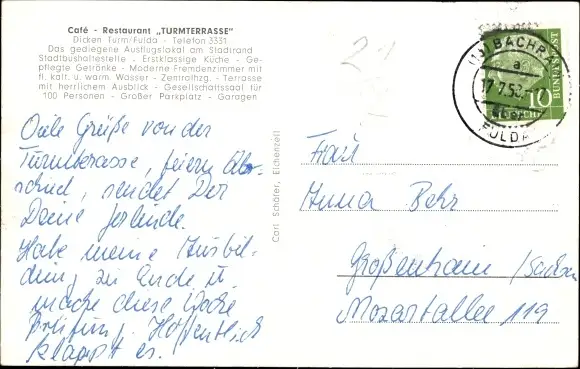 Café - Restaurant „TURMTERRASSE"
Dicken Turm/Fulda - Telefon 3331
Das gediegene Ausflugslokal am Stadtrand
Stadtbushaltestelle - Erstklassige Küche - Ge-
pflegte Getränke - Moderne Fremdenzimmer mit
fl. kalt. u. warm. Wasser - Zentralhzg. - Terrasse
mit herrlichem Ausblick - Gesellschaftssaal für
100 Personen - Großer Parkplatz - Garagen
Viele Grüße von der
Turmterasse, feiern Ab-
schied, sendet Dir
Deine Gerlinde.
Habe meine Ausbil-
dung zu Ende u.
mache diese Woche
Prüfung. Hoffentlich
klappt es.
Carl Schäfer, Eichenzell
BACHR
a
17.7.5
FULDA
10
DEUTSCHE
BUNDESPOST
Frau
Anna Behr
Großenhain/Sachsen
Mozartallee 119